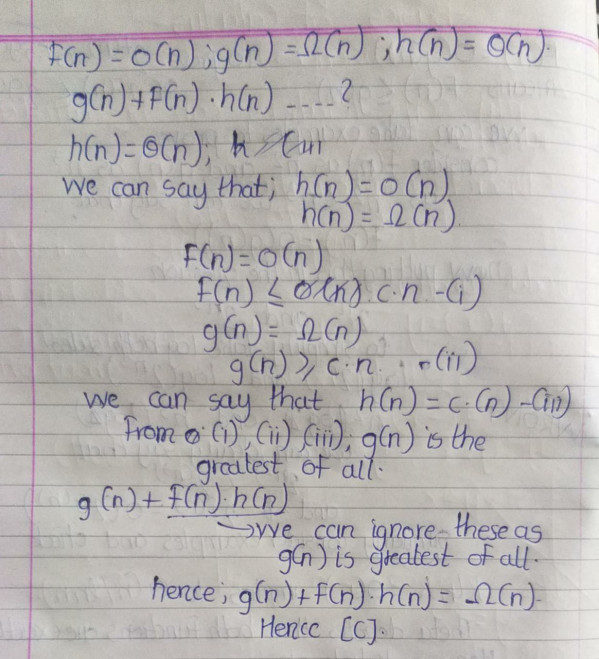 f(n) = O(n) ; g(n) = Ω(n) ; h(n) = Θ(n).
g(n) + f(n) · h(n) ....?
h(n) = Θ(n);
we can say that; h(n) = O(n)
h(n) = Ω(n).
f(n) = O(n)
f(n) ≤ c·n -(i)
g(n) = Ω(n)
g(n) ≥ c·n. -(ii)
we can say that h(n) = c·(n) -(iii)
From (i), (ii), (iii), g(n) is the
greatest of all.
g(n) + f(n)·h(n)
→ we can ignore these as
g(n) is greatest of all.
hence; g(n) + f(n)·h(n) = Ω(n).
Hence [C].